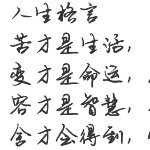 人生格言
苦才是生活，
变才是命运，
容才是智慧，
舍才会得到，